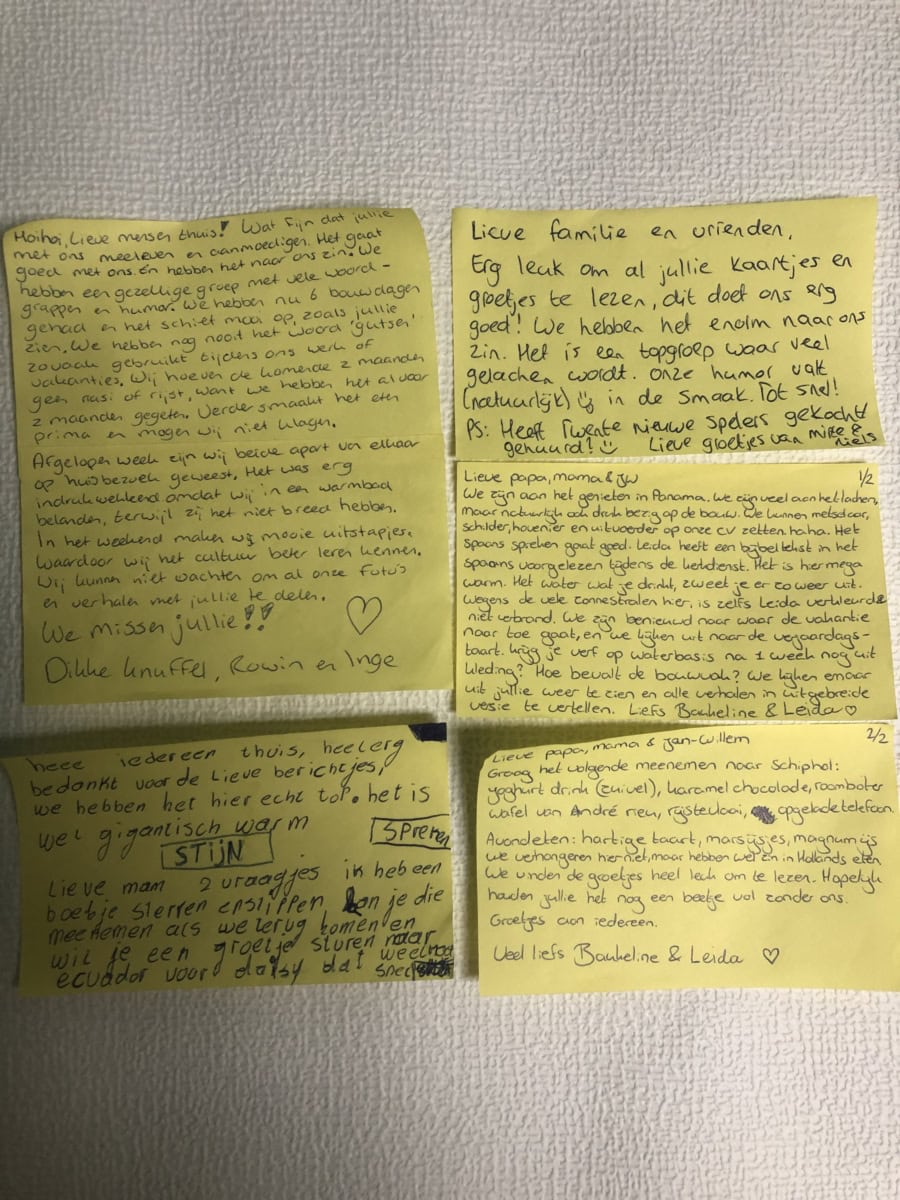 Hoihoi, Lieve mensen thuis! Wat fijn dat jullie
met ons meeleven en aanmoedigen. Het gaat
goed met ons. En hebben het naar ons zin. We
hebben een gezellige groep met vele woord-
grappen en humor. We hebben nu 6 bouwdagen
gehad en het schiet mooi op, zoals jullie
zien. We hebben nog nooit het woord 'gutsen'
zo vaak gebruikt tijdens ons werk of
vakanties. Wij hoeven de komende 2 maanden
geen nasi of rijst, want we hebben het al voor
2 maanden gegeten. Verder smaakt het eten
prima en mogen wij niet klagen.
Afgelopen week zijn wij beide apart van elkaar
op huisbezoek geweest. Het was erg
indrukwekkend omdat wij in een warmbad
belanden, terwijl zij het niet breed hebben.
In het weekend maken wij mooie uitstapjes.
Waardoor wij het cultuur beter leren kennen.
Wij kunnen niet wachten om al onze foto's
en verhalen met jullie te delen.
We missen jullie!!
Dikke knuffel, Rowin en Inge
Lieve familie en vrienden,
Erg leuk om al jullie kaartjes en
groetjes te lezen, dit doet ons erg
goed! We hebben het enorm naar ons
zin. Het is een topgroep waar veel
gelachen wordt. Onze humor valt
(natuurlijk) in de smaak. Tot snel!
PS: Heeft Twente nieuwe spelers gekocht/
gehuurd! Lieve groetjes van &
niels
Lieve papa, mama & jw 1/2
We zijn aan het genieten in Panama. We zijn veel aan het lachen,
maar natuurlijk ook druk bezig op de bouw. We kunnen metselaar,
schilder, hovenier en uitvoerder op onze cv zetten haha. Het
spaans spreken gaat goed. Leida heeft een bijbeltekst in het
spaans voorgelezen tijdens de kerkdienst. Het is hier mega
warm. Het water wat je drinkt, zweet je er zo weer uit.
Wegens de vele zonnestralen hier, is zelfs Leida verkleurd &
niet verbrand. We zijn benieuwd naar waar de vakantie
naar toe gaat, en we kijken uit naar de verjaardags-
taart. Krijg je verf op waterbasis na 1 week nog uit
kleding? Hoe bevalt de bouwvak? We kijken ernaar
uit jullie weer te zien en alle verhalen in uitgebreide
versie te vertellen. Liefs Baukeline & Leida
heee iedereen thuis, heel erg
bedankt voor de lieve berichtjes,
we hebben het hier echt top. het is
wel gigantisch warm
STIJN
Lieve mam 2 vraagjes ik heb een
boetje sterren en slippen kan je die
meenemen als we terug komen en
wil je een groetje sturen naar
ecuador voor daisy dat
Lieve papa, mama & Jan-Willem 2/2
Graag het volgende meenemen naar Schiphol:
yoghurt drink (zuivel), karamel chocolade, roomboter
wafel van André rieu, rijstevlaai, opgeladetelefoon.
Avondeten: hartige taart, marsijsjes, magnum ijs
We verhongeren hier niet, maar hebben wel zin in Hollands eten
We vinden de groetjes heel leuk om te lezen. Hopelijk
houden jullie het nog een beetje vol zonder ons.
Groetjes aan iedereen.
Veel liefs Baukeline & Leida